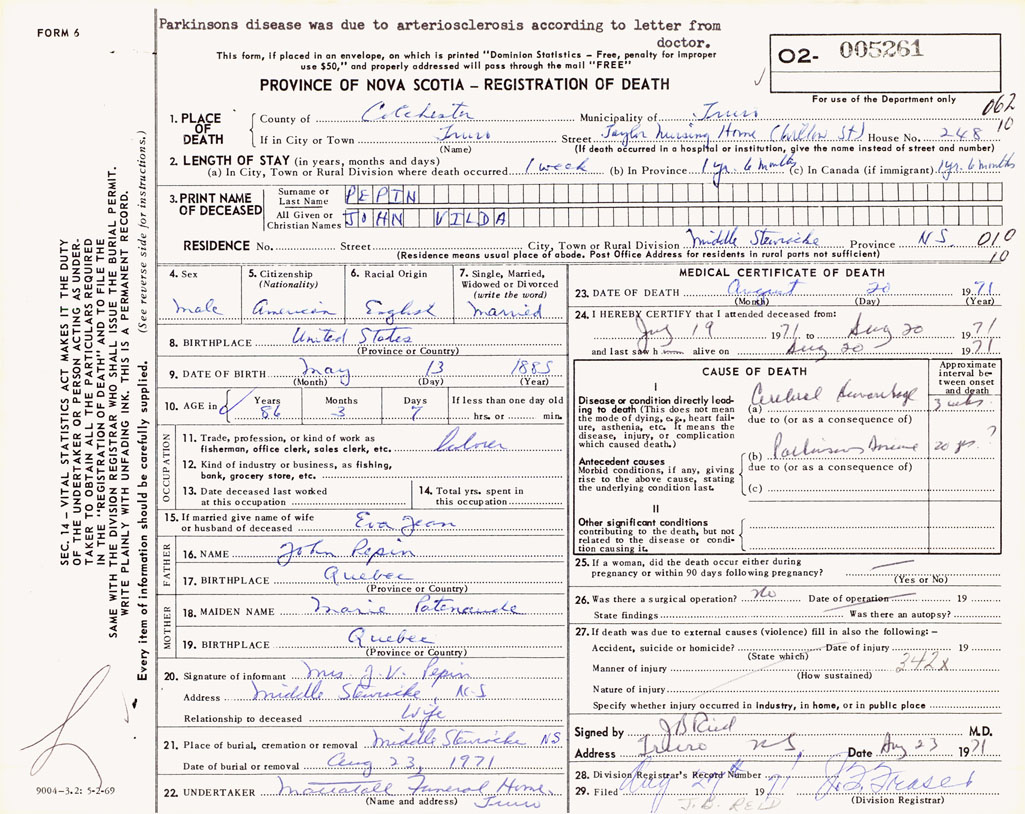 FORM 6
Parkinsons disease was due to arteriosclerosis according to letter from
doctor.
This form, if placed in an envelope, on which is printed "Dominion Statistics – Free, penalty for improper
use $50," and properly addressed will pass through the mail "FREE"
O2- 005261
PROVINCE OF NOVA SCOTIA – REGISTRATION OF DEATH
For use of the Department only
062
10
1. PLACE OF DEATH
County of Colchester Municipality of Truro
If in City or Town Truro Street Taylor Nursing Home (Willow St) House No. 248
(Name) (If death occurred in a hospital or institution, give the name instead of street and number)
2. LENGTH OF STAY (in years, months and days)
(a) In City, Town or Rural Division where death occurred 1 week (b) In Province 1 yr. 6 months (c) In Canada (if immigrant) 1 yr. 6 months
3. PRINT NAME OF DECEASED
Surname or Last Name PEPIN
All Given or Christian Names JOHN VILDA
RESIDENCE No. Street City, Town or Rural Division Middle Stewiacke Province NS 010
(Residence means usual place of abode. Post Office Address for residents in rural parts not sufficient) 10
4. Sex
male
5. Citizenship
(Nationality)
American
6. Racial Origin
English
7. Single, Married,
Widowed or Divorced
(write the word)
Married
8. BIRTHPLACE United States
(Province or Country)
9. DATE OF BIRTH May 13 1885
(Month) (Day) (Year)
10. AGE in Years 86 Months 3 Days 7 If less than one day old
hrs. or min.
OCCUPATION
11. Trade, profession, or kind of work as
fisherman, office clerk, sales clerk, etc. Laborer
12. Kind of industry or business, as fishing,
bank, grocery store, etc.
13. Date deceased last worked
at this occupation
14. Total yrs. spent in
this occupation
15. If married give name of wife
or husband of deceased Eva Jean
FATHER
16. NAME John Pepin
17. BIRTHPLACE Quebec
(Province or Country)
MOTHER
18. MAIDEN NAME Marie Patenaude
19. BIRTHPLACE Quebec
(Province or Country)
20. Signature of informant Mrs. J. V. Pepin
Address Middle Stewiacke, N-S
Relationship to deceased Wife
21. Place of burial, cremation or removal Middle Stewiacke NS
Date of burial or removal Aug 23, 1971
22. UNDERTAKER Mattatall Funeral Home.
(Name and address) Truro
MEDICAL CERTIFICATE OF DEATH
23. DATE OF DEATH August 20 1971
(Month) (Day) (Year)
24. I HEREBY CERTIFY that I attended deceased from:
19 1971 to Aug 20 1971
and last saw h alive on Aug 20 1971
CAUSE OF DEATH
Approximate interval between onset and death
I
Disease or condition directly leading to death (This does not mean
the mode of dying, e.g., heart failure, asthenia, etc. It means the
disease, injury, or complication
which caused death.)
(a) Cerebral Hemorrhage 3 wks.
due to (or as a consequence of)
Antecedent causes
Morbid conditions, if any, giving
rise to the above cause, stating
the underlying condition last.
(b) Parkinsons Disease 20 yrs. ?
due to (or as a consequence of)
(c)
II
Other significant conditions
contributing to the death, but not
related to the disease or condition causing it.
25. If a woman, did the death occur either during
pregnancy or within 90 days following pregnancy?
(Yes or No)
26. Was there a surgical operation? No Date of operation 19
State findings Was there an autopsy?
27. If death was due to external causes (violence) fill in also the following: –
Accident, suicide or homicide? Date of injury 19
(State which)
342x
Manner of injury
(How sustained)
Nature of injury
Specify whether injury occurred in industry, in home, or in public place
Signed by J B Reid M.D.
Address Truro NS, Date Aug 23 1971
28. Division Registrar's Record Number
29. Filed Aug 27 1971 J. F. Fraser
J.B. REID (Division Registrar)
SEC. 14 – VITAL STATISTICS ACT MAKES IT THE DUTY
OF THE UNDERTAKER OR PERSON ACTING AS UNDER-
TAKER TO OBTAIN ALL THE PARTICULARS REQUIRED
IN THE "REGISTRATION OF DEATH" AND TO FILE THE
SAME WITH THE DIVISION REGISTRAR WHO SHALL ISSUE THE BURIAL PERMIT.
WRITE PLAINLY WITH UNFADING INK. THIS IS A PERMANENT RECORD.
Every item of information should be carefully supplied. (See reverse side for instructions.)
9004-3.2: 5-2-69